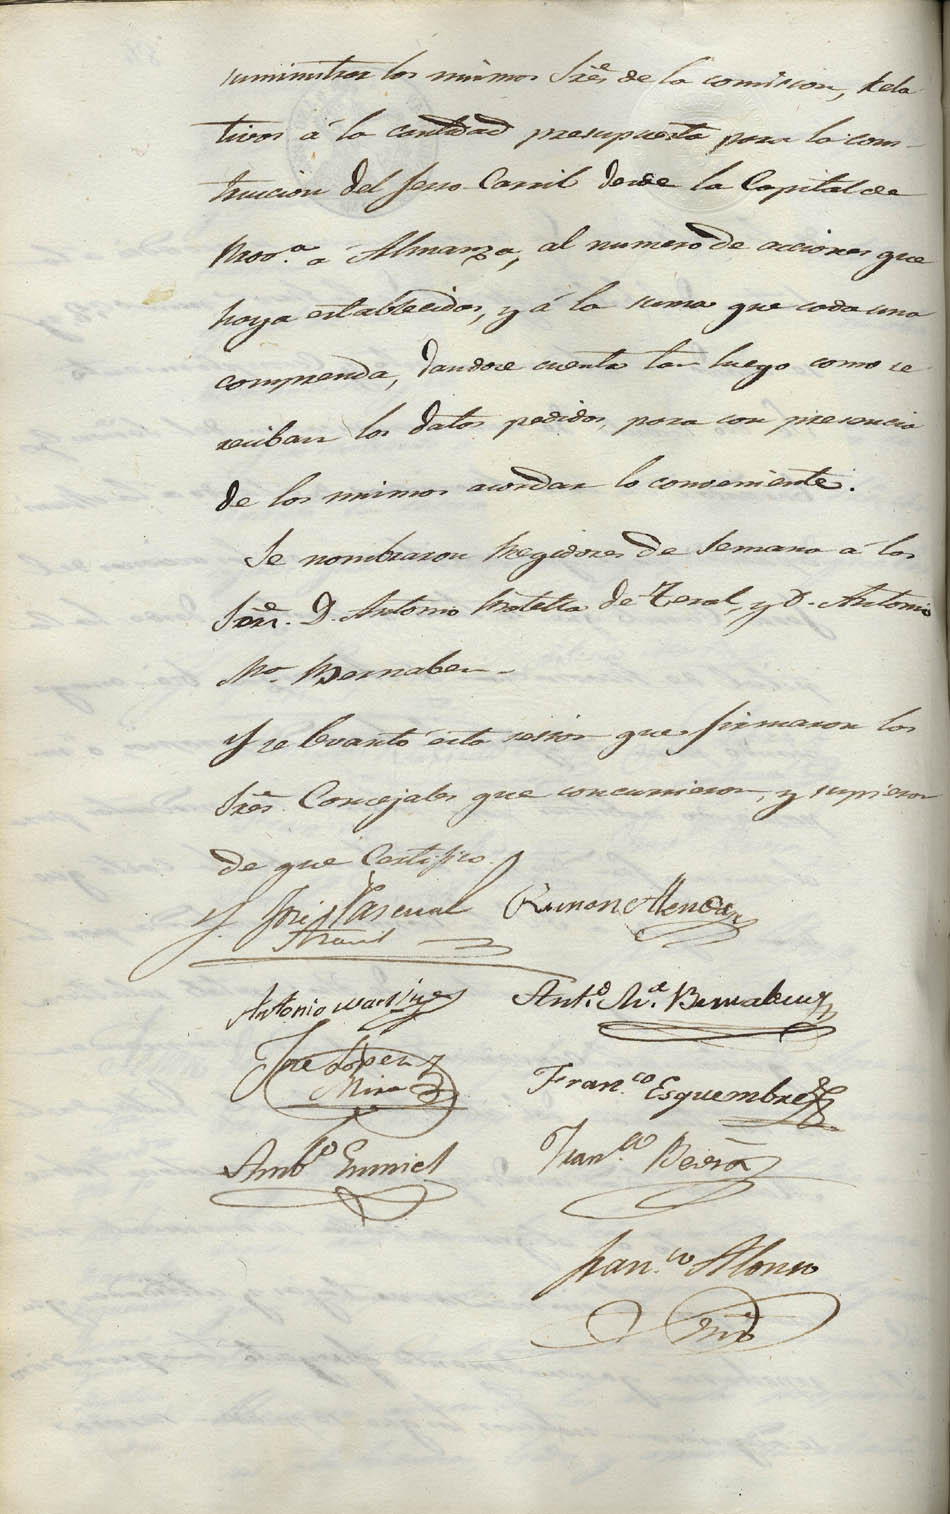 suministrar los mismos Sres. de la comision, rela
tivos á la cantidad presupuesta para la cons-
truccion del ferro-Carril desde la Capital de
Prov.ª a Almanza, al numero de acciones que
haya establecidos, y á la suma que cada una
comprenda, dandose cuenta tan luego como se
reciban los datos pedidos, para con presencia
de los mismos acordar lo conveniente.
Se nombraron Regidores de Semana á los
Sres. D. Antonio de y D. Antonio
Mª. Bernabeu.
Y se levantó esta sesion que firmaron los
Sres. Concejales que concurrieron, y supieron
de que Certifico.
José Pascual Ramon
Antonio Martinez Ant.º M.ª Bernabeu
Jose Lopez Fran.co Esquembre
Mira
Amb.º Fran.co
Fran.co Alonso
Srio